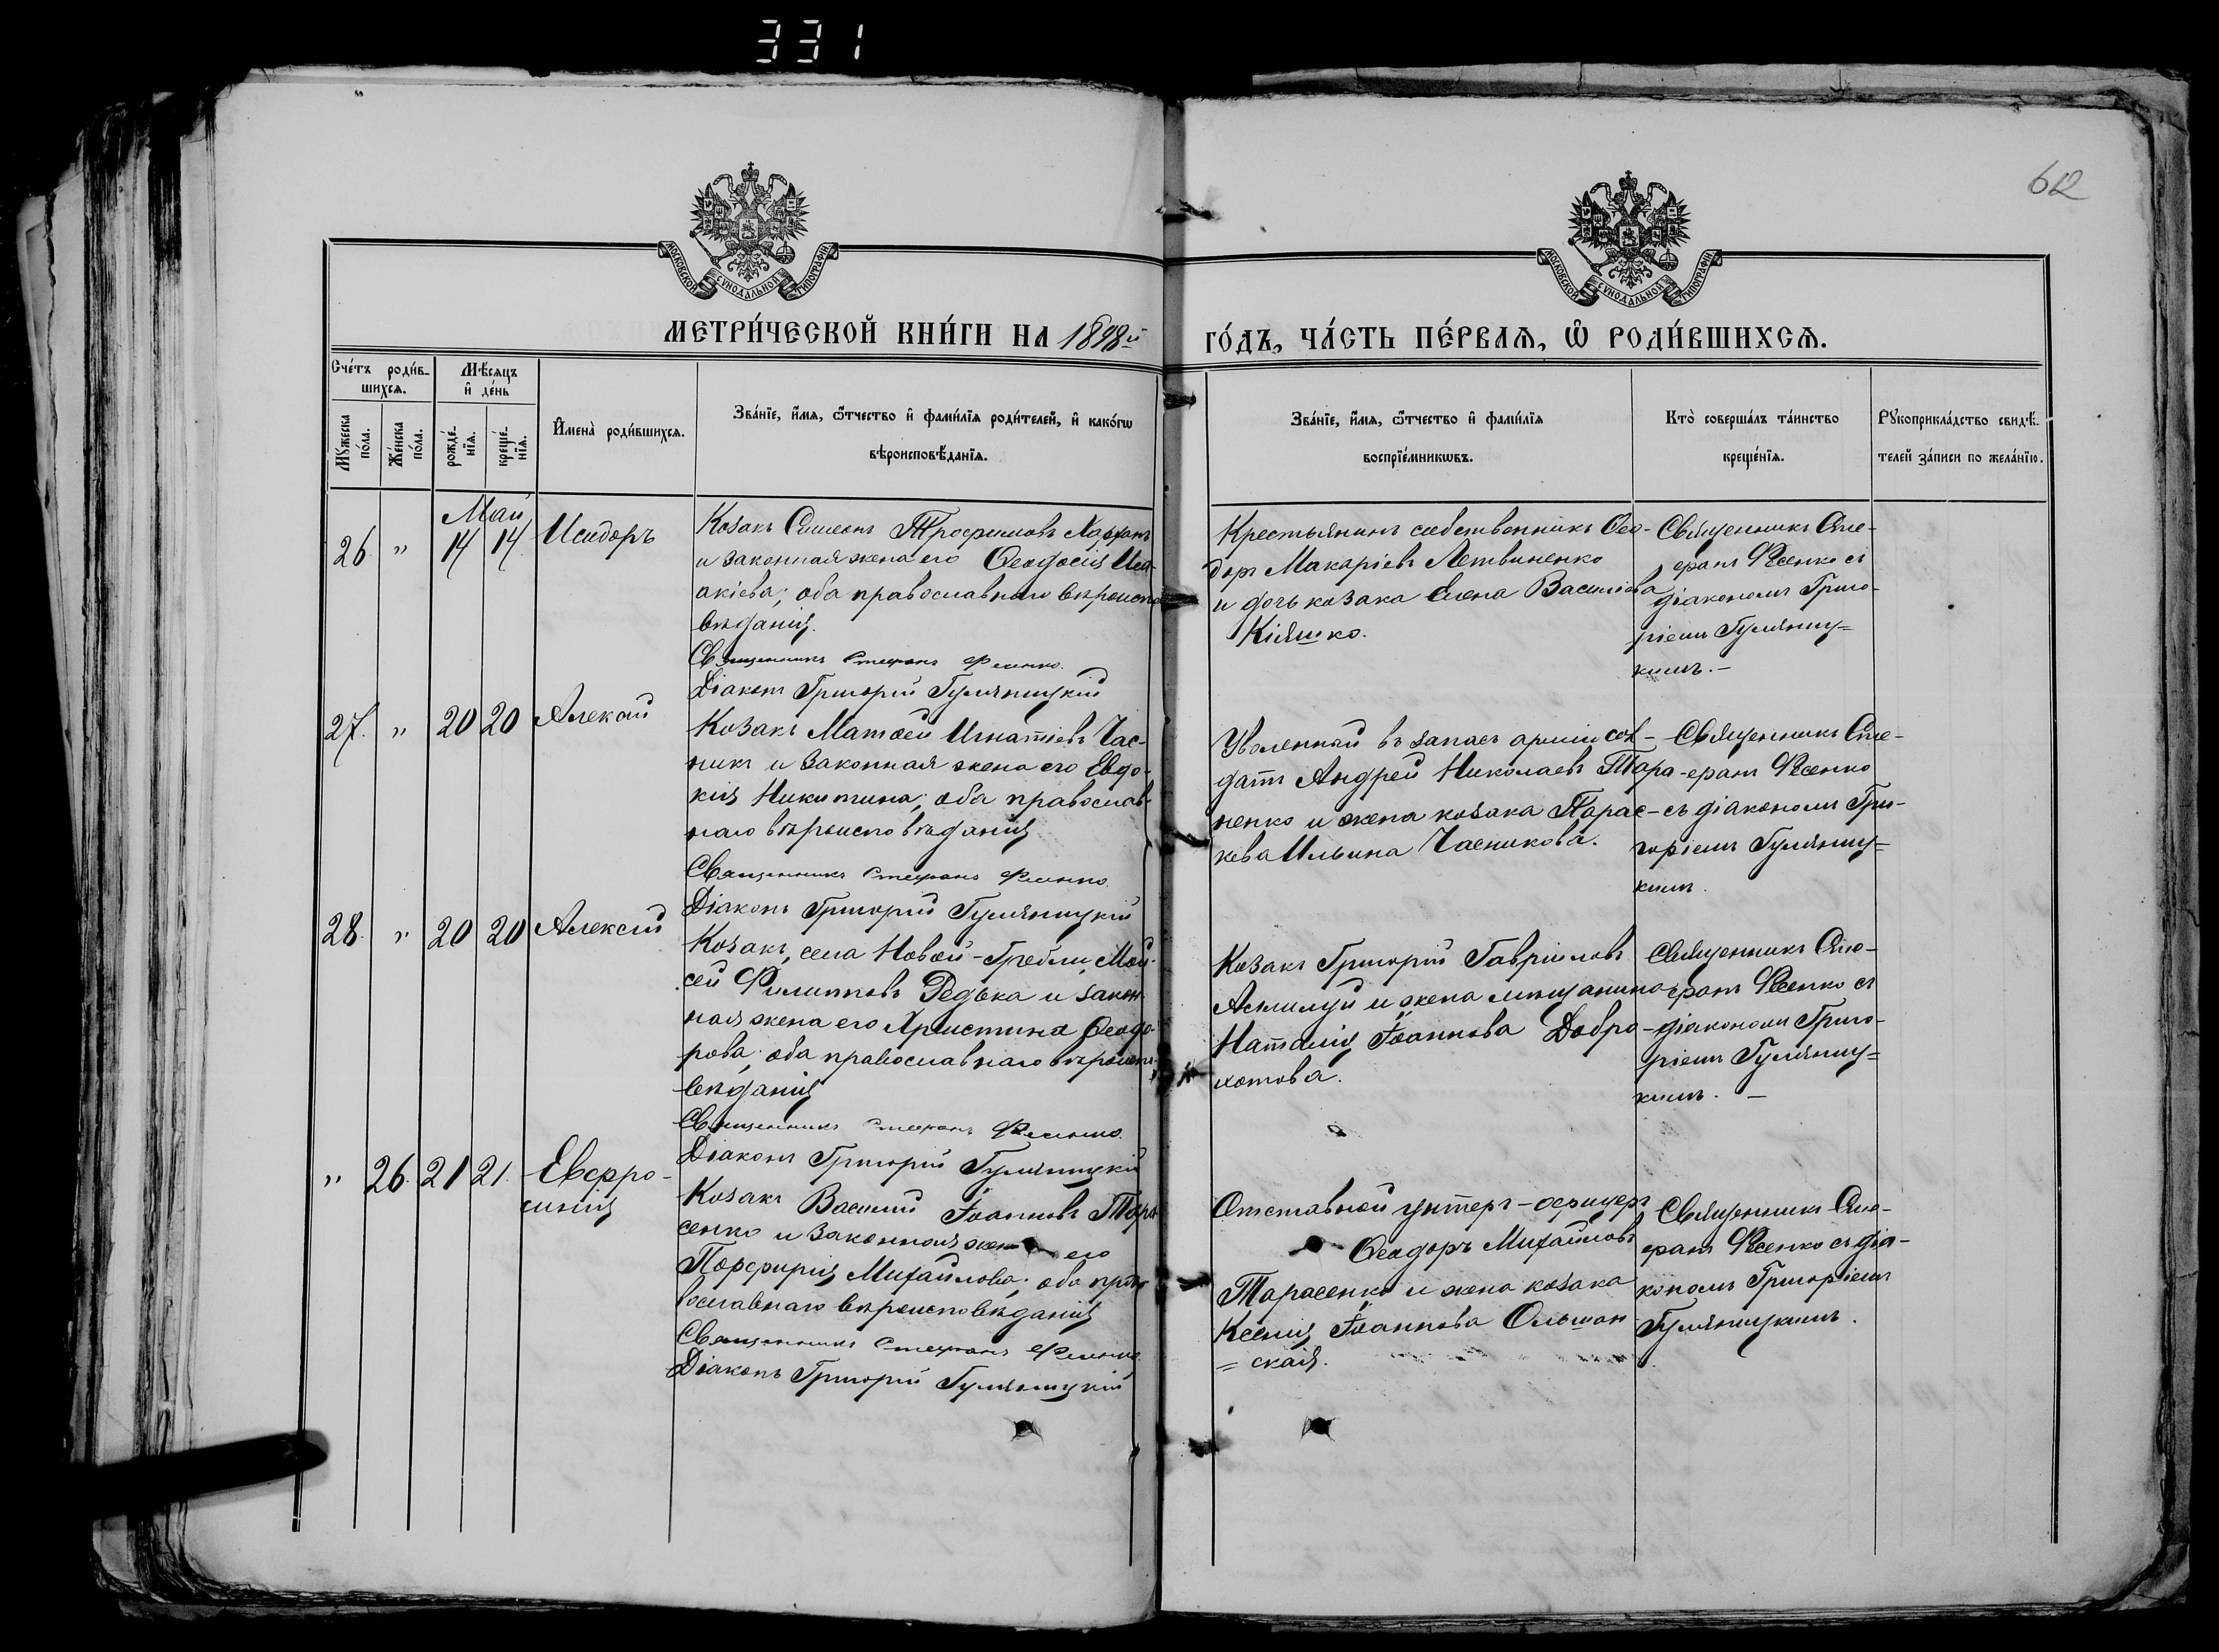 331
612
МОСКОВСКОЙ СѴНОДАЛЬНОЙ ТИПОГРАФІИ
МОСКОВСКОЙ СѴНОДАЛЬНОЙ ТИПОГРАФІИ
МЕТРИ́ЧЕСКОЙ КНИ́ГИ НА 1898й ГО́ДЪ, ЧА́СТЬ ПЕ́РВАѦ, Ѿ РОДИ́ВШИХСѦ.
Сче́тъ роди́в-
шихсѧ.
Мꙋ́жеска по́ла.
Же́нска по́ла.
Мѣ́сѧцъ
и҆ де́нь
рожде́-
нїѧ.
креще́-
нїѧ.
И҆мена̀ роди́вшихсѧ.
Зва́нїе, и҆́мѧ, ѻ҆́тчество и҆ фами́лїѧ роди́телей, и҆ како́гѡ
вѣроисповѣ́данїѧ.
Зва́нїе, и҆́мѧ, ѻ҆́тчество и҆ фами́лїѧ
воспрїе́мникѡвъ.
Кто̀ соверша́лъ та́инство
креще́нїѧ.
Рꙋкоприкла́дство свидѣ́-
телей за́писи по жела́нїю.
Май
26. " 14 14 Исидоръ
Козакъ Симеонъ Трофимовъ
и законная жена его Ѳеодосія Иса-
акіева; оба православнаго вѣроиспо
вѣданія.
Священникъ Стефанъ Фесенко.
Діаконъ Григорій Гуляницкій
Крестьянинъ собственникъ Ѳео-
доръ Макаріевъ Летвиненко
и дочь козака Елена Василіева
Кіяшко.
Священникъ Сте-
фанъ Фесенко съ
діакономъ Григо-
ріемъ Гуляниц=
кимъ. -
27. " 20 20 Алексій
Козакъ Матѳей Игнатіевъ Час-
никъ и законная жена его Евдо-
кія Никитина; оба православ-
наго вѣроисповѣданія
Священникъ Стефанъ Фесенко.
Діаконъ Григорій Гуляницкій
Уволенный въ запасъ арміи сол-
датъ Андрей Николаевъ Тара-
ненко и жена козака Парас-
кева Ильина Часникова.
Священникъ Сте-
фанъ Фесенко
съ діакономъ Гри-
горіемъ Гуляниц=
кимъ.
28. " 20 20 Алексій
Козакъ, села Новой-Гребли, Мой-
сей Филипповъ Редька и закон
ная жена его Христина Ѳеодо-
рова; оба православнаго вѣроиспо-
вѣданія
Священникъ Стефанъ Фесенко.
Діаконъ Григорій Гуляницкій
Козакъ Григорій Гавріиловъ
и жена мѣщанина
Наталія Іоаннова Добро-
хотова.
Священникъ Сте-
фанъ Фесенко съ
діакономъ Григо-
ріемъ Гуляниц=
кимъ. -
" 26. 21 21. Евфро-
синія
Козакъ Василій Іоанновъ Тара
сенко и законная жена его
Порфирія Михайлова; оба пра-
вославнаго вѣроисповѣданія
Священникъ Стефанъ Фесенко.
Діаконъ Григорій Гуляницкій
Отставной унтеръ-офицеръ
Ѳеодоръ Михайловъ
Тарасенко и жена козака
Ксенія Іоаннова Ольшан
= ская.
Священникъ Сте-
фанъ Фесенко съ діа-
кономъ Григоріемъ
Гуляницкимъ.